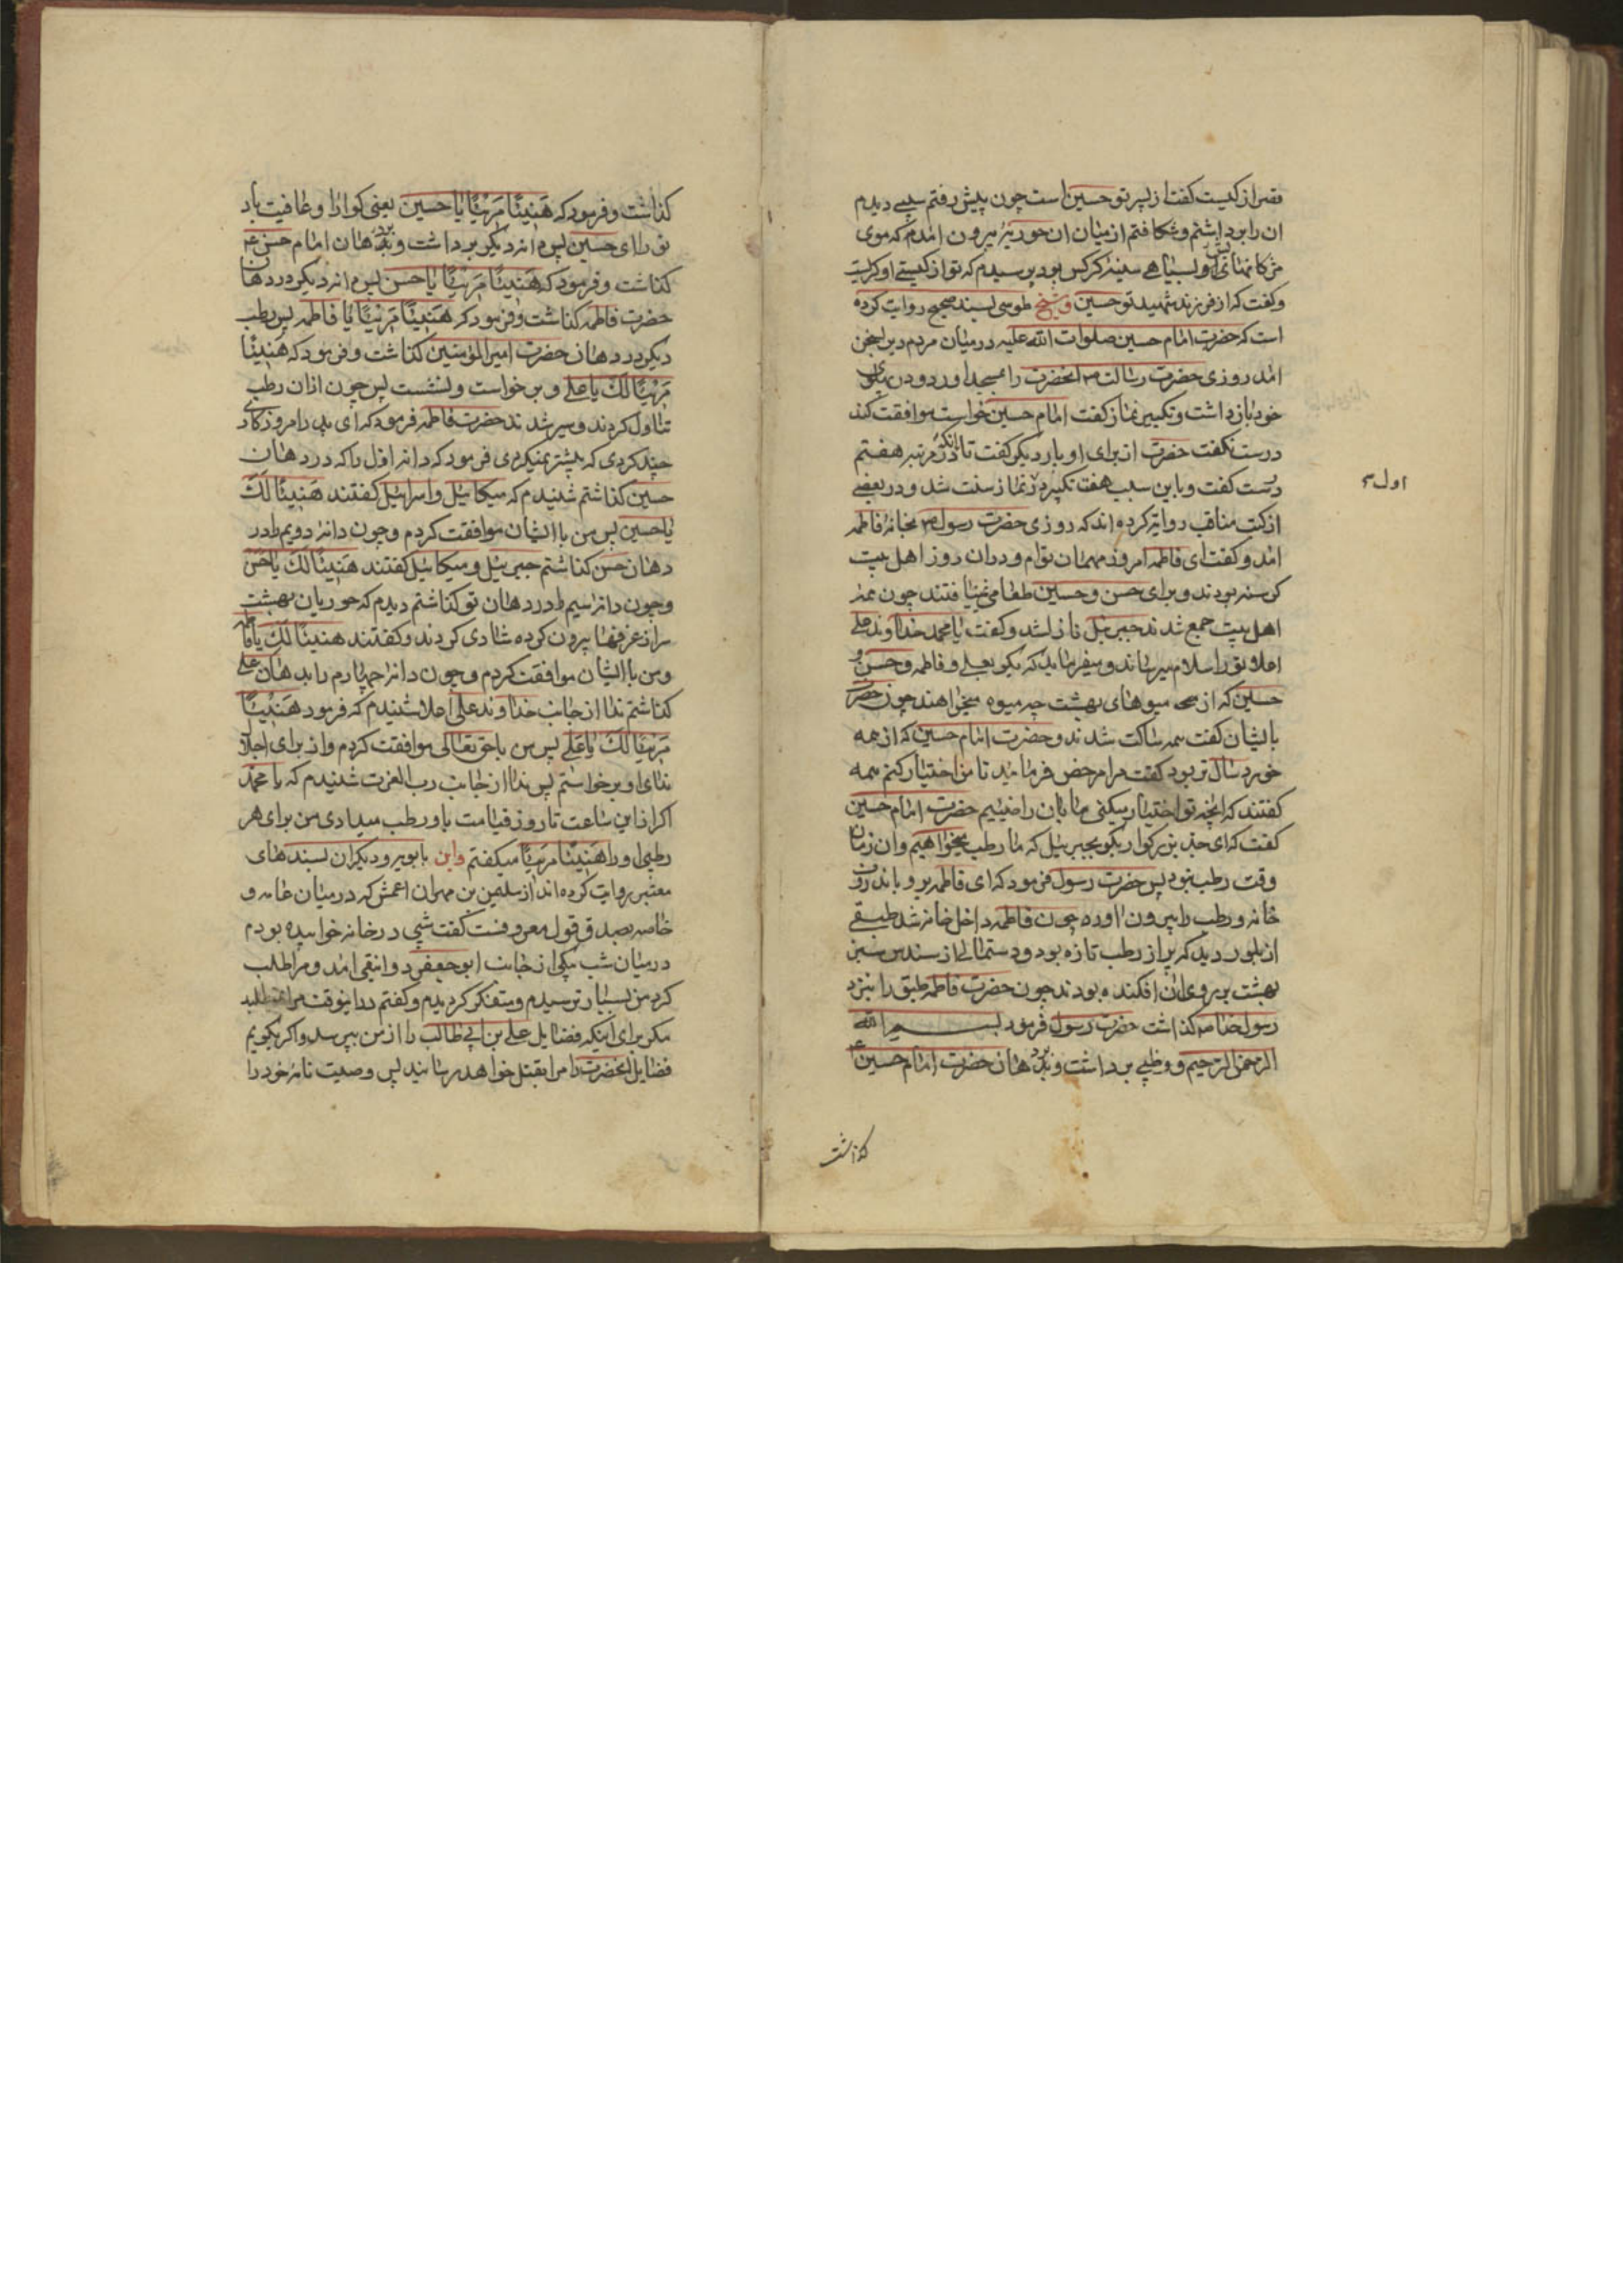 قصر از کیست کفت از پسر تو حسین است چون پیش رفتم سیبی دیدم
ان را برداشتم و شکافتم از میان ان حوریه بیرون امدم که موی
مژکانهای او بسیاهی سینه کرکس بود پرسیدم که تو از کیستی او کریست
و کفت که از فرزند شهید تو حسین و شیخ طوسی بسند صحیح روایت کرده
است که حضرت امام حسین صلوات الله علیه در میان مردم دیر بسخن
امد روزی حضرت رسالت ص انحضرت را بمسجد اورد و در پهلوی
خود بازداشت و تکبیر نماز کفت امام حسین خواست موافقت کند
درست نکفت حضرت از برای او بار دیکر کفت تا انکه در مرتبه هفتم
درست کفت و باین سبب هفت تکبیر در نماز سنت شد و در بعضی
اول ص
از کتب مناقب روایة کرده اند که روزی حضرت رسول ص بخانه فاطمه
امد و کفت ای فاطمه امروز مهمان توام و دران روز اهل بیت
کرسنه بودند و برای حسن و حسین طعامی نمییافتند چون همه
اهل بیت جمع شدند جبرییل نازل شد و کفت یا محمد خداوند علی
اعلا تو را سلام میرساند و میفرماید که بکو بعلی و فاطمه و حسن و
حسین که از میوهای بهشت چه میوه میخواهند چون حضرت
بایشان کفت همه ساکت شدند و حضرت امام حسین که از همه
خورد سال تر بود کفت مرا مرخص فرمایید تا من اختیار کنم همه
کفتند که انچه تو اختیار میکنی ما بان راضییم حضرت امام حسین
کفت که ای جد بزرکوار بکو بجبرییل که ما رطب میخواهیم و ان زمان
وقت رطب نبود پس حضرت رسول فرمود که ای فاطمه برو باندرون
خانه و رطب را بیرون اور چون فاطمه داخل خانه شد طبقی
از بلور دید که پر از رطب تازه بود و دستمالی از سندس سبز
بهشت بر روی ان افکنده بودند چون حضرت فاطمه طبق را بنزد
رسول خدا ص کذاشت حضرت رسول فرمود بسم الله
الرحمن الرحیم و رطبی برداشت و بدهان حضرت امام حسین ع
کذاشت
کذاشت و فرمود که هَنیئًا مَریئًا یا حسین یعنی کوارا و عافیت باد
تو را ای حسین پس دانه دیکر برداشت و بدهان امام حسن ع
کذاشت و فرمود که هَنیئًا مَریئًا یا حسن پس دانه دیکر در دهان
حضرت فاطمه کذاشت و فرمود که هَنیئًا مَریئًا یا فاطمه پس رطب
دیکر در دهان حضرت امیرالمؤمنین کذاشت و فرمود که هَنیئًا
مَریئًا لَکَ یا علی و برخواست و نشست پس چون ازان رطب
تناول کردند و سیر شدند حضرت فاطمه فرمود که ای پدر امروز کاری
چند کردی که پیشتر نمیکردی فرمود که دانه اول را که در دهان
حسین کذاشتم شنیدم که میکاییل و اسرافیل کفتند هَنیئًا لَکَ
یا حسین پس من با ایشان موافقت کردم و چون دانه دویم را در
دهان حسن کذاشتم جبرییل و میکاییل کفتند هَنیئًا لَکَ یا حَسَن
و چون دانه سیم را در دهان تو کذاشتم دیدم که حوریان بهشت
سر از غرفها بیرون کرده شادی کردند و کفتند هنیئًا لَکِ یا فاطمه
و من با ایشان موافقت کردم و چون دانه چهارم را بدهان علی
کذاشتم ندا از جانب خداوند علی اعلا شنیدم که فرمود هَنیئًا
مَریئًا لَکَ یا علی پس من با حق تعالی موافقت کردم و از برای اجلال
ندای او برخواستم پس ندا از جانب رب العزت شنیدم که یا محمد
اکر از این ساعت تا روز قیامت باو رطب میدادی من برای هر
رطبی او را هَنیئًا مَریئًا میکفتم و ابن بابویه و دیکران بسندهای
معتبر روایت کرده اند از سلیمن بن مهران اعمش که در میان عامه و
خاصه بصدق قول معروفست کفت شبی در خانه خوابیده بودم
در میان شب پیکی از جانب ابوجعفر دوانیقی امد و مرا طلب
کرد من بسیار ترسیدم و متفکر کردیدم و کفتم در اینوقت مرا نمیطلبد
مکر برای اینکه فضایل علی بن ابی طالب را از من بپرسد و اکر بکویم
فضایل انحضرت را مرا بقتل خواهد رسانید پس وصیت نامه خود را